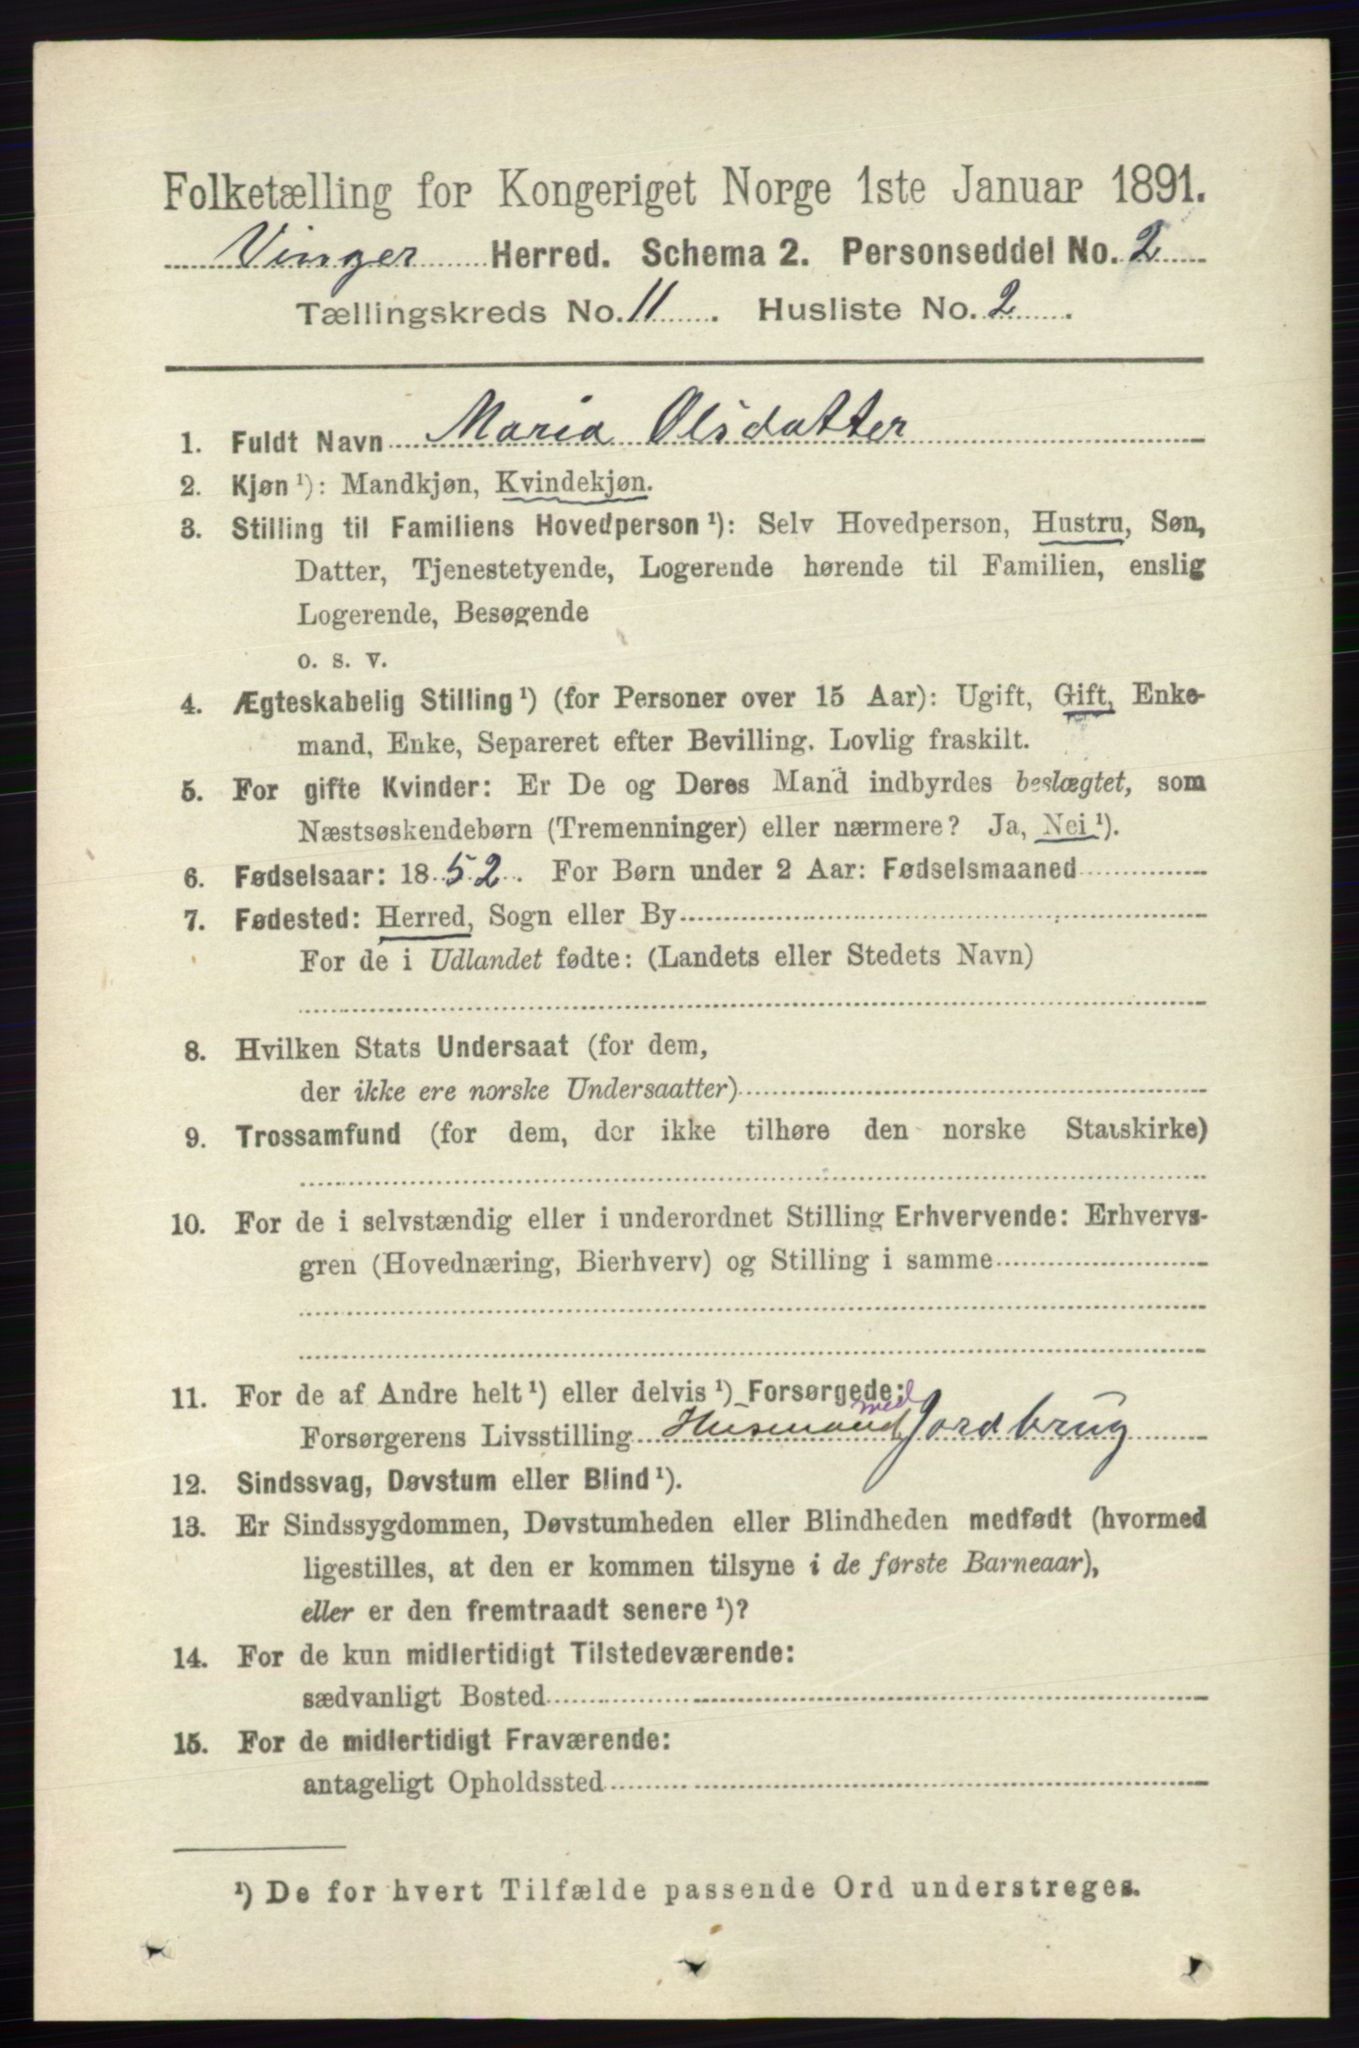 Folketælling for Kongeriget Norge 1ste Januar 1891.
Vinger Herred. Schema 2. Personseddel No. 2
Tællingskreds No. 11. Husliste No. 2.
1. Fuldt Navn Maria Olsdatter
2. Kjøn ¹): Mandkjøn, Kvindekjøn.
3. Stilling til Familiens Hovedperson ¹): Selv Hovedperson, Hustru, Søn,
Datter, Tjenestetyende, Logerende hørende til Familien, enslig
Logerende, Besøgende
o. s. v.
4. Ægteskabelig Stilling ¹) (for Personer over 15 Aar): Ugift, Gift, Enke-
mand, Enke, Separeret efter Bevilling. Lovlig fraskilt.
5. For gifte Kvinder: Er De og Deres Mand indbyrdes beslægtet, som
Næstsøskendebørn (Tremenninger) eller nærmere? Ja, Nei ¹).
6. Fødselsaar: 1852. For Børn under 2 Aar: Fødselsmaaned
7. Fødested: Herred, Sogn eller By
For de i Udlandet fødte: (Landets eller Stedets Navn)
8. Hvilken Stats Undersaat (for dem,
der ikke ere norske Undersaatter)
9. Trossamfund (for dem, der ikke tilhøre den norske Statskirke)
10. For de i selvstændig eller i underordnet Stilling Erhvervende: Erhvervs-
gren (Hovednæring, Bierhverv) og Stilling i samme
11. For de af Andre helt ¹) eller delvis ¹) Forsørgede:
Forsørgerens Livsstilling Husmand med Jordbrug
12. Sindssvag, Døvstum eller Blind ¹).
13. Er Sindssygdommen, Døvstumheden eller Blindheden medfødt (hvormed
ligestilles, at den er kommen tilsyne i de første Barneaar),
eller er den fremtraadt senere ¹)?
14. For de kun midlertidigt Tilstedeværende:
sædvanligt Bosted
15. For de midlertidigt Fraværende:
antageligt Opholdssted
¹) De for hvert Tilfælde passende Ord understreges.